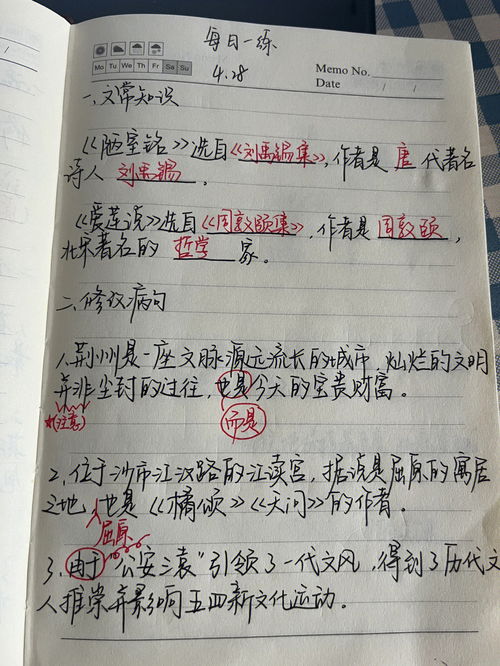 每日一练
Mo Tu We Th Fr Sa Su
4.28
Memo No.
Date / /
一、文常知识
《陋室铭》选自《刘禹锡集》，作者是 唐 代著名
诗人 刘禹锡 。
《爱莲说》选自《周敦颐集》，作者是 周敦颐 ，
北宋著名的 哲学 家。
二、修改病句
1、荆州是一座文脉源远流长的城市，灿烂的文明
并非尘封的过往，也是今天的宝贵财富。
(注意)
而是
2、位于沙市江汉路的江渎宫，据说是屈原的寓居
之地，也是《橘颂》《天问》的作者。
屈原
3、由于"公安三袁"引领了一代文风，得到了历代文
人推崇并影响五四新文化运动。